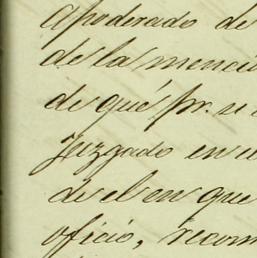 apoderado de
de la menci
de qué pr. u
juzgado en
de el en que
oficio, recom